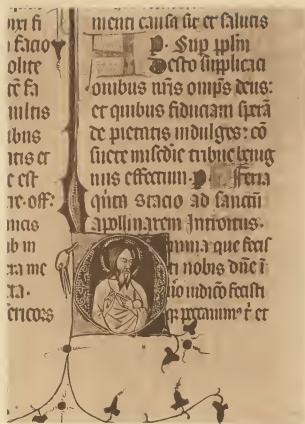 uxi fi
i facio
olite
te fa
multis
ibus
ntis et
e est
re. off:
micis
ub m
tra me
ta.
sericors
menti causa sit et salutis
P. Sup pplm
Desto supplicaci
onibus nris omps deus:
et quibus fiduciam sperā
de pietatis indulges: cō
suete misedie tribue benig
nus effectum. P. Feria
qinta Stacio ad sanctū
apollinarem Introitus.
Omnia que fecis
ti nobis dūe ī
uīo iudico fecisti
qr peccauimus t et